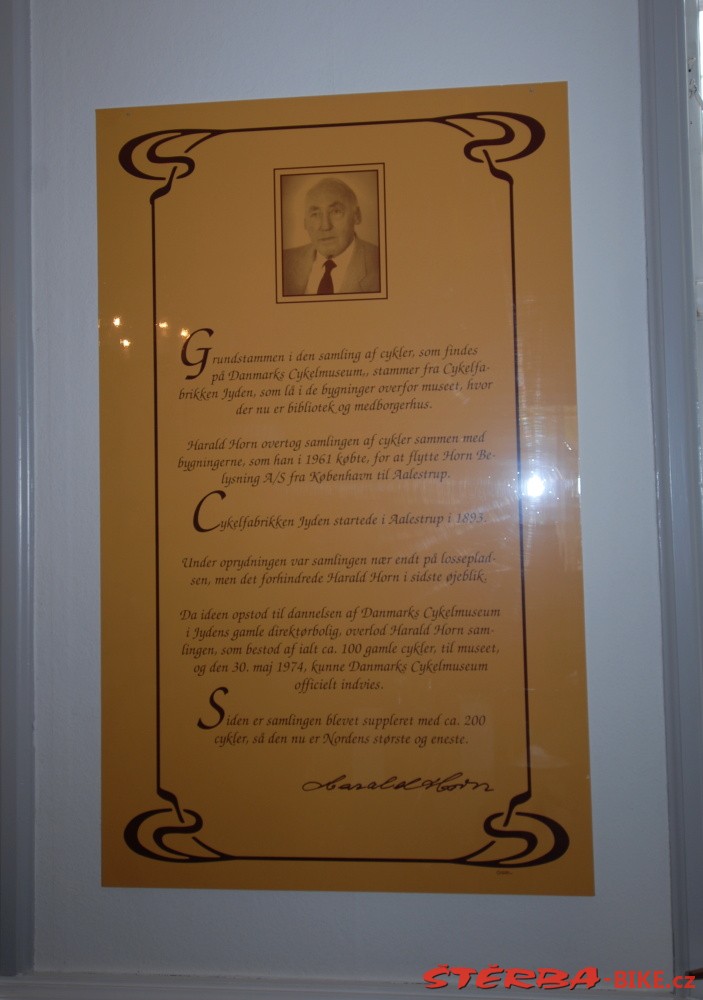 Grundstammen i den samling af cykler, som findes
på Danmarks Cykelmuseum,, stammer fra Cykelfa-
brikken Jyden, som lå i de bygninger overfor museet, hvor
der nu er bibliotek og medborgerhus.
Harald Horn overtog samlingen af cykler sammen med
bygningerne, som han i 1961 købte, for at flytte Horn Be-
lysning A/S fra København til Aalestrup.
Cykelfabrikken Jyden startede i Aalestrup i 1893.
Under oprydningen var samlingen nær endt på lossepled-
sen, men det forhindrede Harald Horn i sidste øjeblik.
Da ideen opstod til dannelsen af Danmarks Cykelmuseum
i Jydens gamle direktørbolig, overlod Harald Horn sam-
lingen, som bestod af ialt ca. 100 gamle cykler, til museet,
og den 30. maj 1974, kunne Danmarks Cykelmuseum
officielt indvies.
Siden er samlingen blevet suppleret med ca. 200
cykler, så den nu er Nordens største og eneste.
Harald Horn
ŠTĚRBA-BIKE.cz